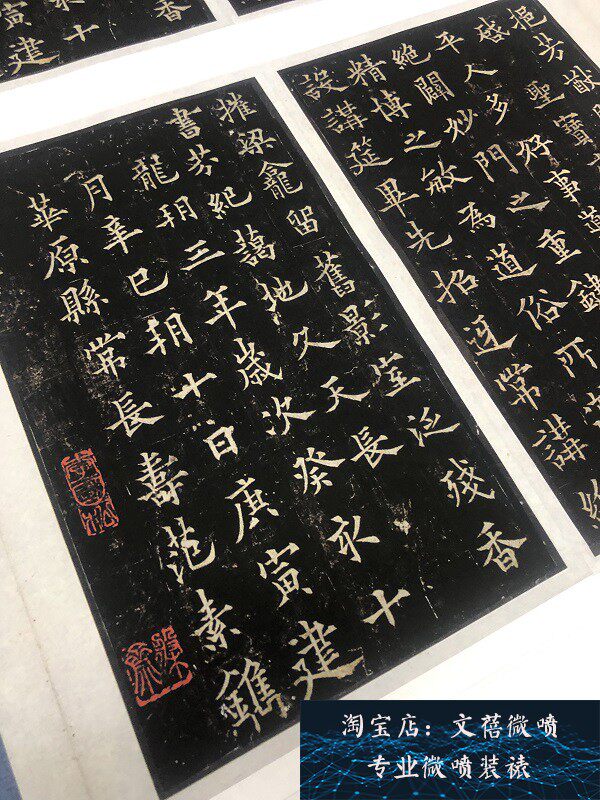 挹芬猷
聖寶
平人多好事道
絕關妙門之重
精博之敏為道俗所
設講筵畢先招迓常講
摧梁龕留舊影室泛殘香
書芬紀藹地久天長
龍朔三年歲次癸亥十
月辛巳朔十日庚寅建
華原縣常長壽范素鐫
香
十
寅建
淘宝店：文蓓微喷
专业微喷装裱